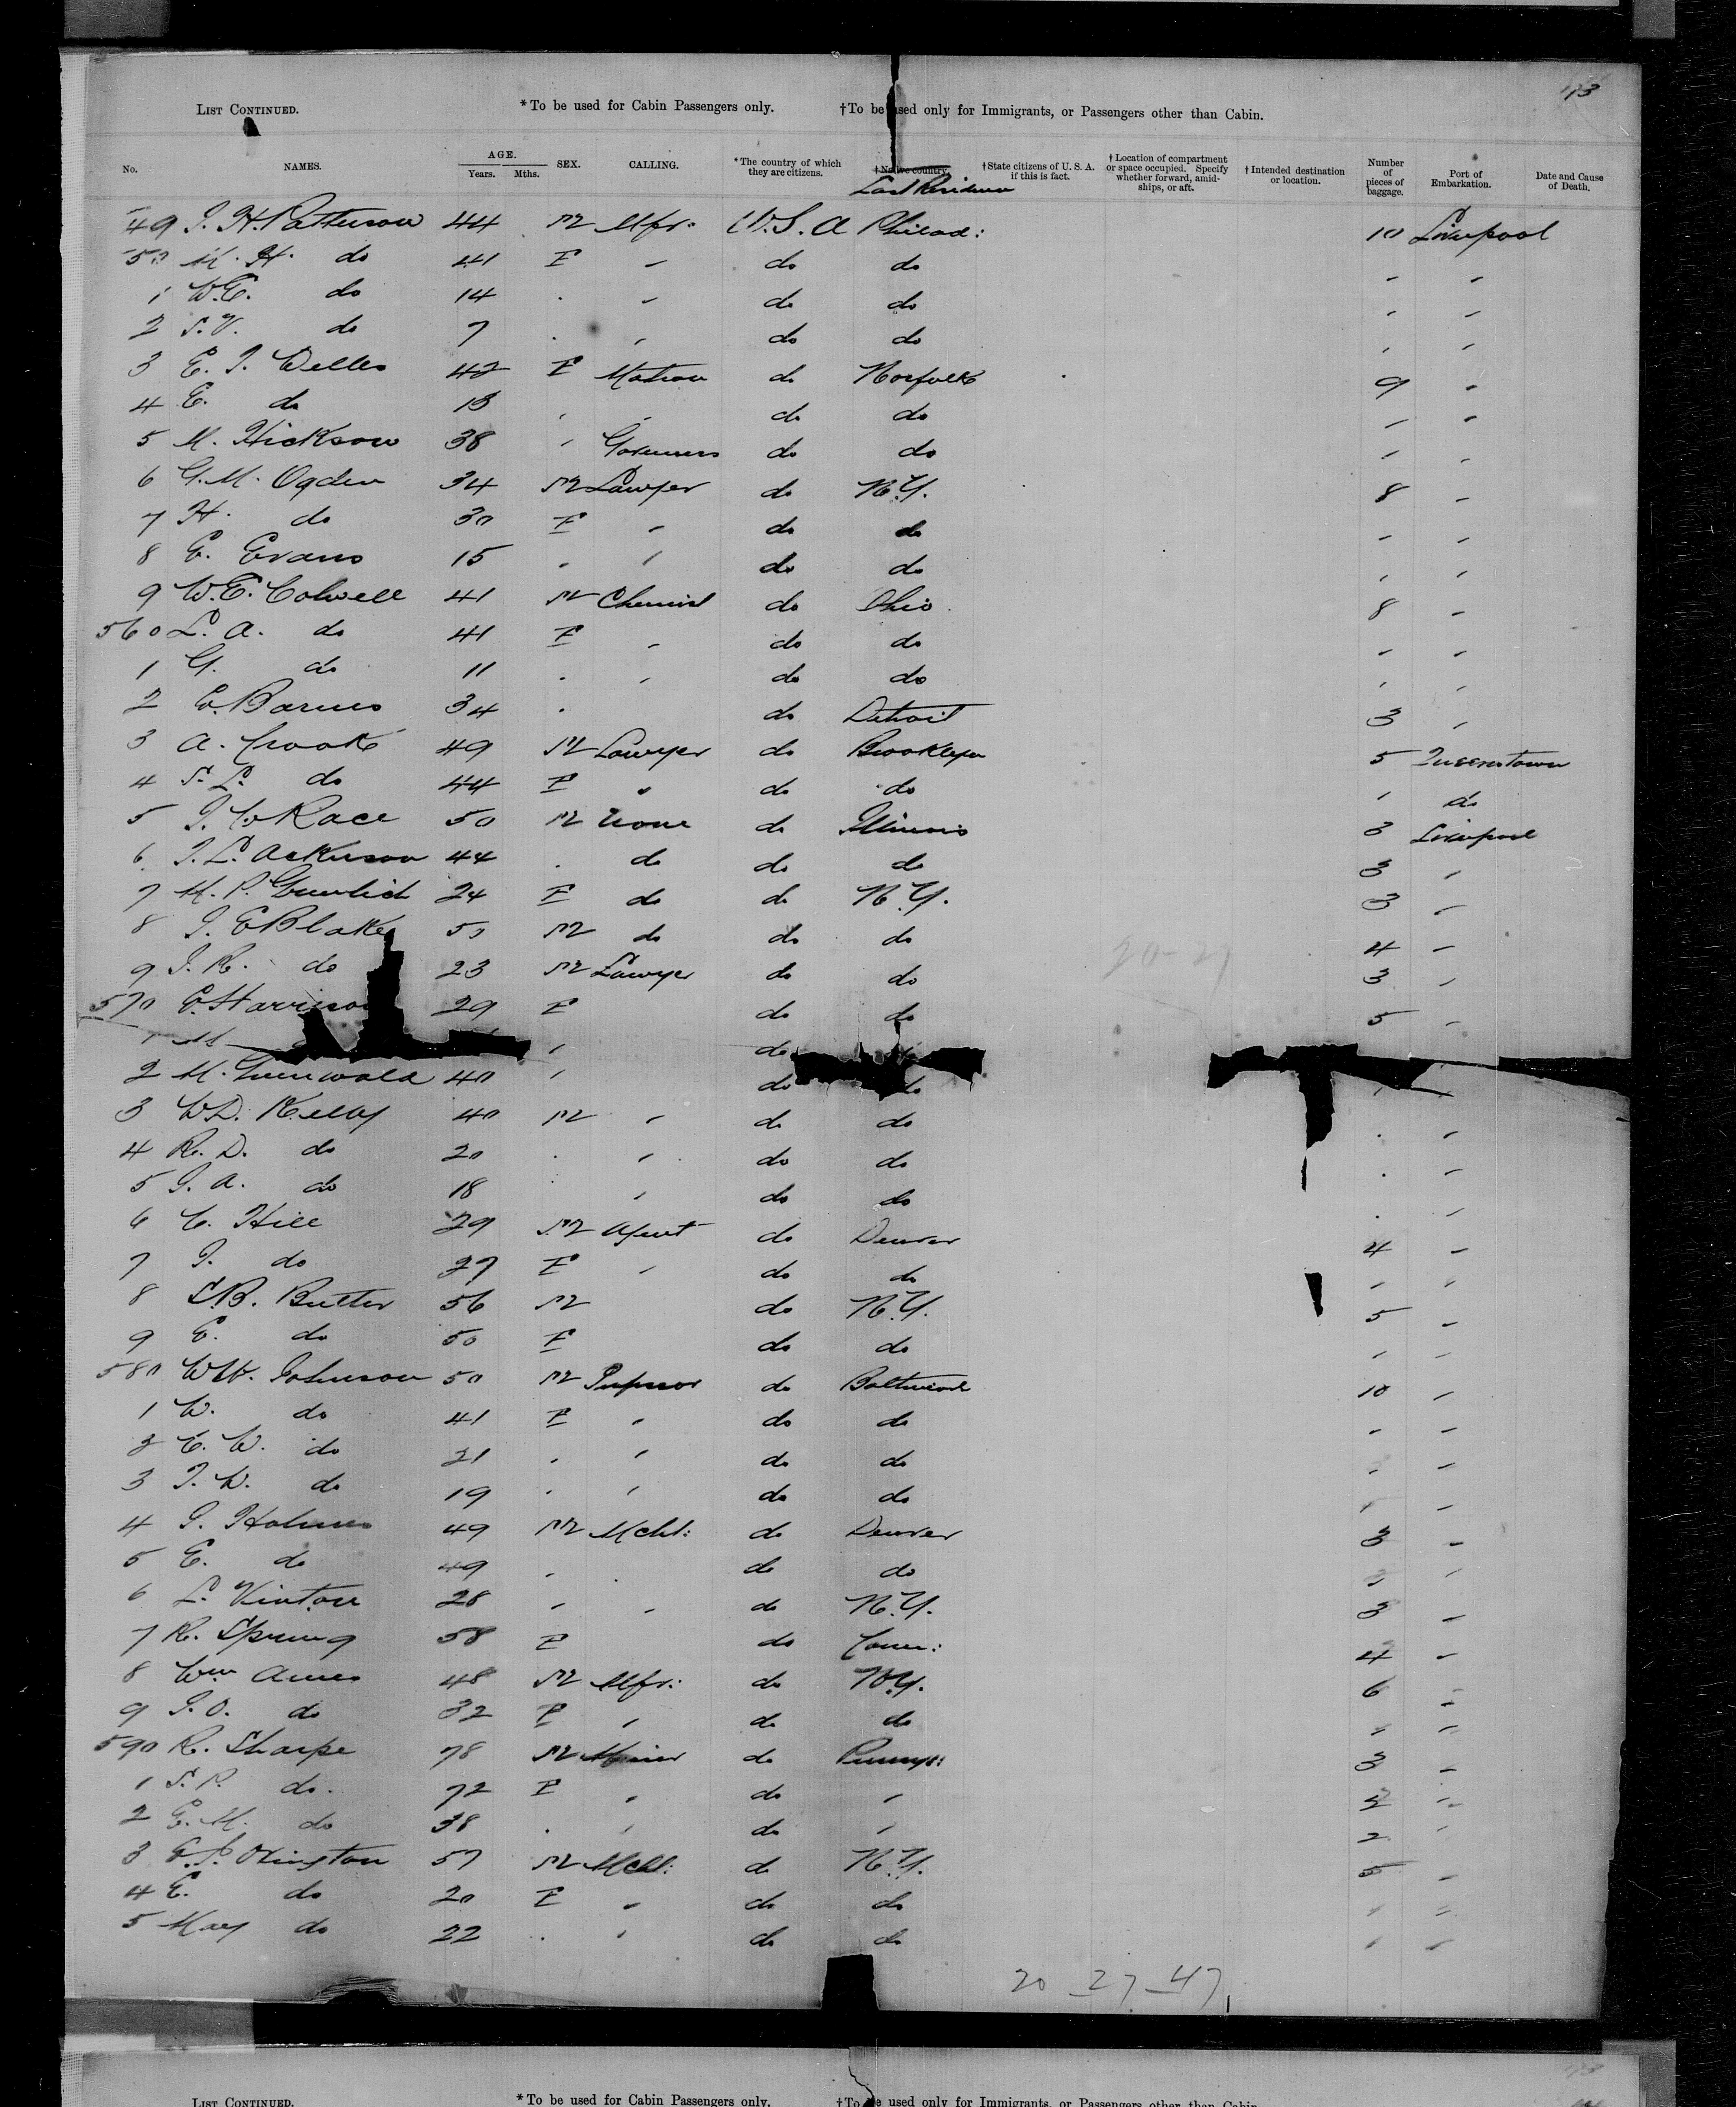 173
LIST CONTINUED. *To be used for Cabin Passengers only. †To be used only for Immigrants, or Passengers other than Cabin.
No. NAMES. AGE. Years. Mths. SEX. CALLING. *The country of which they are citizens. †Native country. Last Residence †State citizens of U. S. A. if this is fact. †Location of compartment or space occupied. Specify whether forward, amidships, or aft. †Intended destination or location. Number of pieces of baggage. Port of Embarkation. Date and Cause of Death.
49 J. H. Patterson 44 M Mfr: U.S.A Philad: 10 Liverpool
50 M. H. do 41 F " do do " "
1 W.E. do 14 " " do do " "
2 S.V. do 7 " " do do " "
3 E. J. Welles 42 F Matron do Norfolk 9 "
4 E. do 13 " " do do " "
5 M. Hickson 38 " Governess do do " "
6 G. M. Ogden 34 M Lawyer do N.Y. 8 "
7 H. do 30 F " do do " "
8 E. Evans 15 " " do do " "
9 W.E. Colwell 41 M Chemist do Ohio 8 "
560 L. A. do 41 F " do do " "
1 G. do 11 " " do do " "
2 E. Barnes 34 " do Detroit 3 "
3 A. Crook 49 M Lawyer do Brooklyn 5 Queenstown
4 S. L. do 44 F " do do 1 do
5 J. W Race 50 M None do Illinois 3 Liverpool
6 J. L. Ackerson 44 " do do do 3 "
7 M. P. 24 F do do N.Y. 3 "
8 J. E Blake 50 M do do do 4 "
9 J. R. do 23 M Lawyer do do 3 "
570 E. Harrison 29 F do do 5 "
1 M " do
2 M. Grunwald 40 " do do " "
3 W.D. Kelly 40 M " do do " "
4 R. D. do 20 " " do do " "
5 J. A. do 18 " do do " "
6 C. Hill 29 M Agent do Denver 4 "
7 J. do 27 F " do do " "
8 S.B. Butler 56 M do N.Y. 5 "
9 E. do 50 F do do " "
580 W.H. Johnson 50 M do Baltimore 10 "
1 W. do 41 F " do do " "
2 C. W. do 21 " " do do " "
3 J. W. do 19 " " do do " "
4 J. Holmes 49 M Mcht: do Denver 3 "
5 E. do 49 " do do " "
6 L. Vinton 28 " " do N.Y. 3 "
7 R. Spring 58 F do Conn: 4 "
8 Wm Ames 48 M Mfr: do N.Y. 6 "
9 J. O. do 32 F " do do " "
590 R. Sharpe 78 M do Pennys: 3 "
1 S. P. do. 72 F " do " 2 "
2 E. M. do 38 " " do " 2 "
3 Ovington 57 M Mcht: do N.Y. 5 "
4 E. do 20 F " do do " "
5 May do 22 " " do do " "
20-27
20 27 47
LIST CONTINUED. *To be used for Cabin Passengers only. †To be used only for Immigrants, or Passengers other than Cabin.